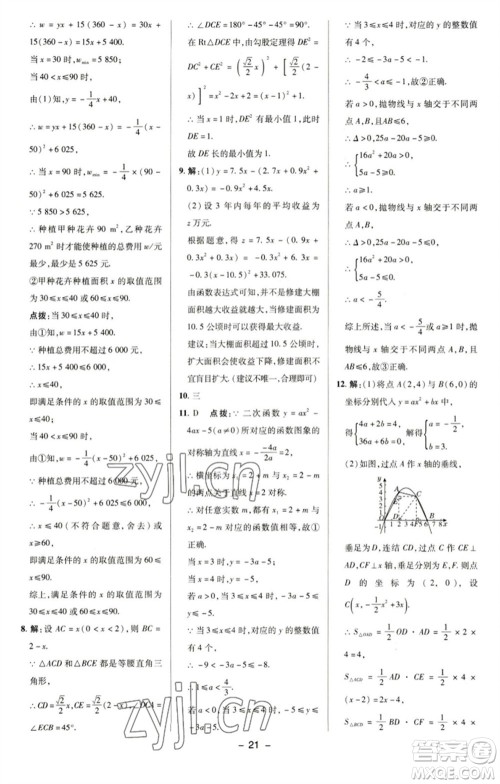 ∴ w = yx + 15(360 - x) = 30x +
15(360 - x) = 15x + 5 400.
当 x = 30 时, w_min = 5 850;
当 40 < x ≤ 90 时,
由(1)知, y = -1/4 x + 40,
∴ w = yx + 15(360 - x) = -1/4(x -
50)² + 6 025,
∴ 当 x = 90 时, w_min = -1/4 × (90 -
50)² + 6 025 = 5 625.
∵ 5 850 > 5 625,
∴ 种植甲种花卉 90 m², 乙种花卉
270 m² 时才能使种植的总费用 w(元)
最少,最少是 5 625 元.
②甲种花卉种植面积 x 的取值范围
为 30≤x≤40 或 60≤x≤90.
点拨:当 30≤x≤40 时,
由①知, w = 15x + 5 400,
∵ 种植总费用不超过 6 000 元,
∴ 15x + 5 400≤6 000,
∴ x≤40,
即满足条件的 x 的取值范围为
30≤x≤40,
当 40 < x≤90 时,
由①知, w = -1/4(x - 50)² + 6 025,
∵ 种植总费用不超过 6 000 元,
∴ -1/4(x - 50)² + 6 025≤6 000,
∴ x≤40(不符合题意,舍去)或
x≥60,
即满足条件的 x 的取值范围为
60≤x≤90.
综上,满足条件的 x 的取值范围为
30≤x≤40 或 60≤x≤90.
8. 解:设 AC = x(0 < x < 2),则 BC =
2 - x.
∵ △ACD 和△BCE 都是等腰直角三
角形,
∴ CD = √2/2 x, CE = √2/2(2 - x), ∠ACD =
∠ECB = 45°.
∴ ∠DCE = 180° - 45° - 45° = 90°.
在 Rt△DCE 中,由勾股定理得 DE² =
DC² + CE² = (√2/2 x)² + [√2/2(2 -
x)]² = x² - 2x + 2 = (x - 1)² + 1,
∴ 当 x = 1 时, DE² 有最小值 1,此时
DE = 1.
故 DE 长的最小值为 1.
9. 解:(1)y = 7.5x - (2.7x + 0.9x² +
0.3x) = -0.9x² + 4.5x.
(2)设 3 年内每年的平均收益为
z 万元.
根据题意,得 z = 7.5x - (0.9x +
0.3x² + 0.3x) = -0.3x² + 6.3x =
-0.3(x - 10.5)² + 33.075.
由函数表达式可知,并不是修建大棚
面积越大收益就越大,当修建面积为
10.5 公顷时可以得到最大收益.
建议:当大棚面积超过 10.5 公顷时,
扩大面积会使收益下降,修建面积不
宜盲目扩大.(建议不唯一,合理即可)
10. 三
11. D 点拨:∵ 二次函数 y = ax² -
4ax - 5(a≠0)所对应的函数图象的
对称轴为直线 x = -(-4a)/2a = 2,
∴ 横坐标为 x₁ = 2 + m 与 x₂ = 2 - m
的两点关于直线 x = 2 对称,
∴ 对应的函数值相等,故①正确.
当 x = 3 时, y = -3a - 5,
当 x = 4 时, y = -5.
若 a > 0,当 3≤x≤4 时, -3a - 5≤
y≤-5.
∵ 当 3≤x≤4 时,对应的 y 的整数值
有 4 个,
∴ -9 < -3a - 5≤-8,
∴ 1≤a < 4/3.
若 a < 0,当 3≤x≤4 时, -5≤y≤
-3a - 5.
∵ 当 3≤x≤4 时,对应的 y 的整数值
有 4 个,
∴ -2≤-3a - 5 < -1,
∴ -4/3 < a≤-1,故②正确.
若 a > 0,抛物线与 x 轴交于不同两
点 A,B,且 AB≤6,
∴ Δ > 0,25a - 20a - 5≥0,
∴ a≥1.
若 a < 0,抛物线与 x 轴交于不同两
点 A,B,且 AB≤6,
∴ Δ > 0,25a - 20a - 5≤0,
∴ a < -5/4.
综上所述,当 a < -5/4 或 a≥1 时,抛
物线与 x 轴交于不同两点 A,B,且
AB≤6,故③正确.故选 D.
12. 解:(1)将点 A(2,4)与 B(6,0)的
坐标分别代入 y = ax² + bx,
得 { 4a + 2b = 4, 36a + 6b = 0, 解得 { a = -1/2, b = 3.
(2)如图,过点 A 作 x 轴的垂线,
垂足为 D,连接 CD,过点 C 作 CE⊥
AD, CF⊥x 轴,垂足分别为 E,F,则
D 的坐标为 (2,0),设
C(x, -1/2 x² + 3x).
∴ S△OAD = 1/2 OD · AD = 1/2 × 2 ×
4 = 4,
S△ACD = 1/2 AD · CE = 1/2 × 4 ×
(x - 2) = 2x - 4,
S△BCD = 1/2 BD · CF = 1/2 × 4 ×
- 21 -
zyjl.cn
zyjl.cn
答案圈